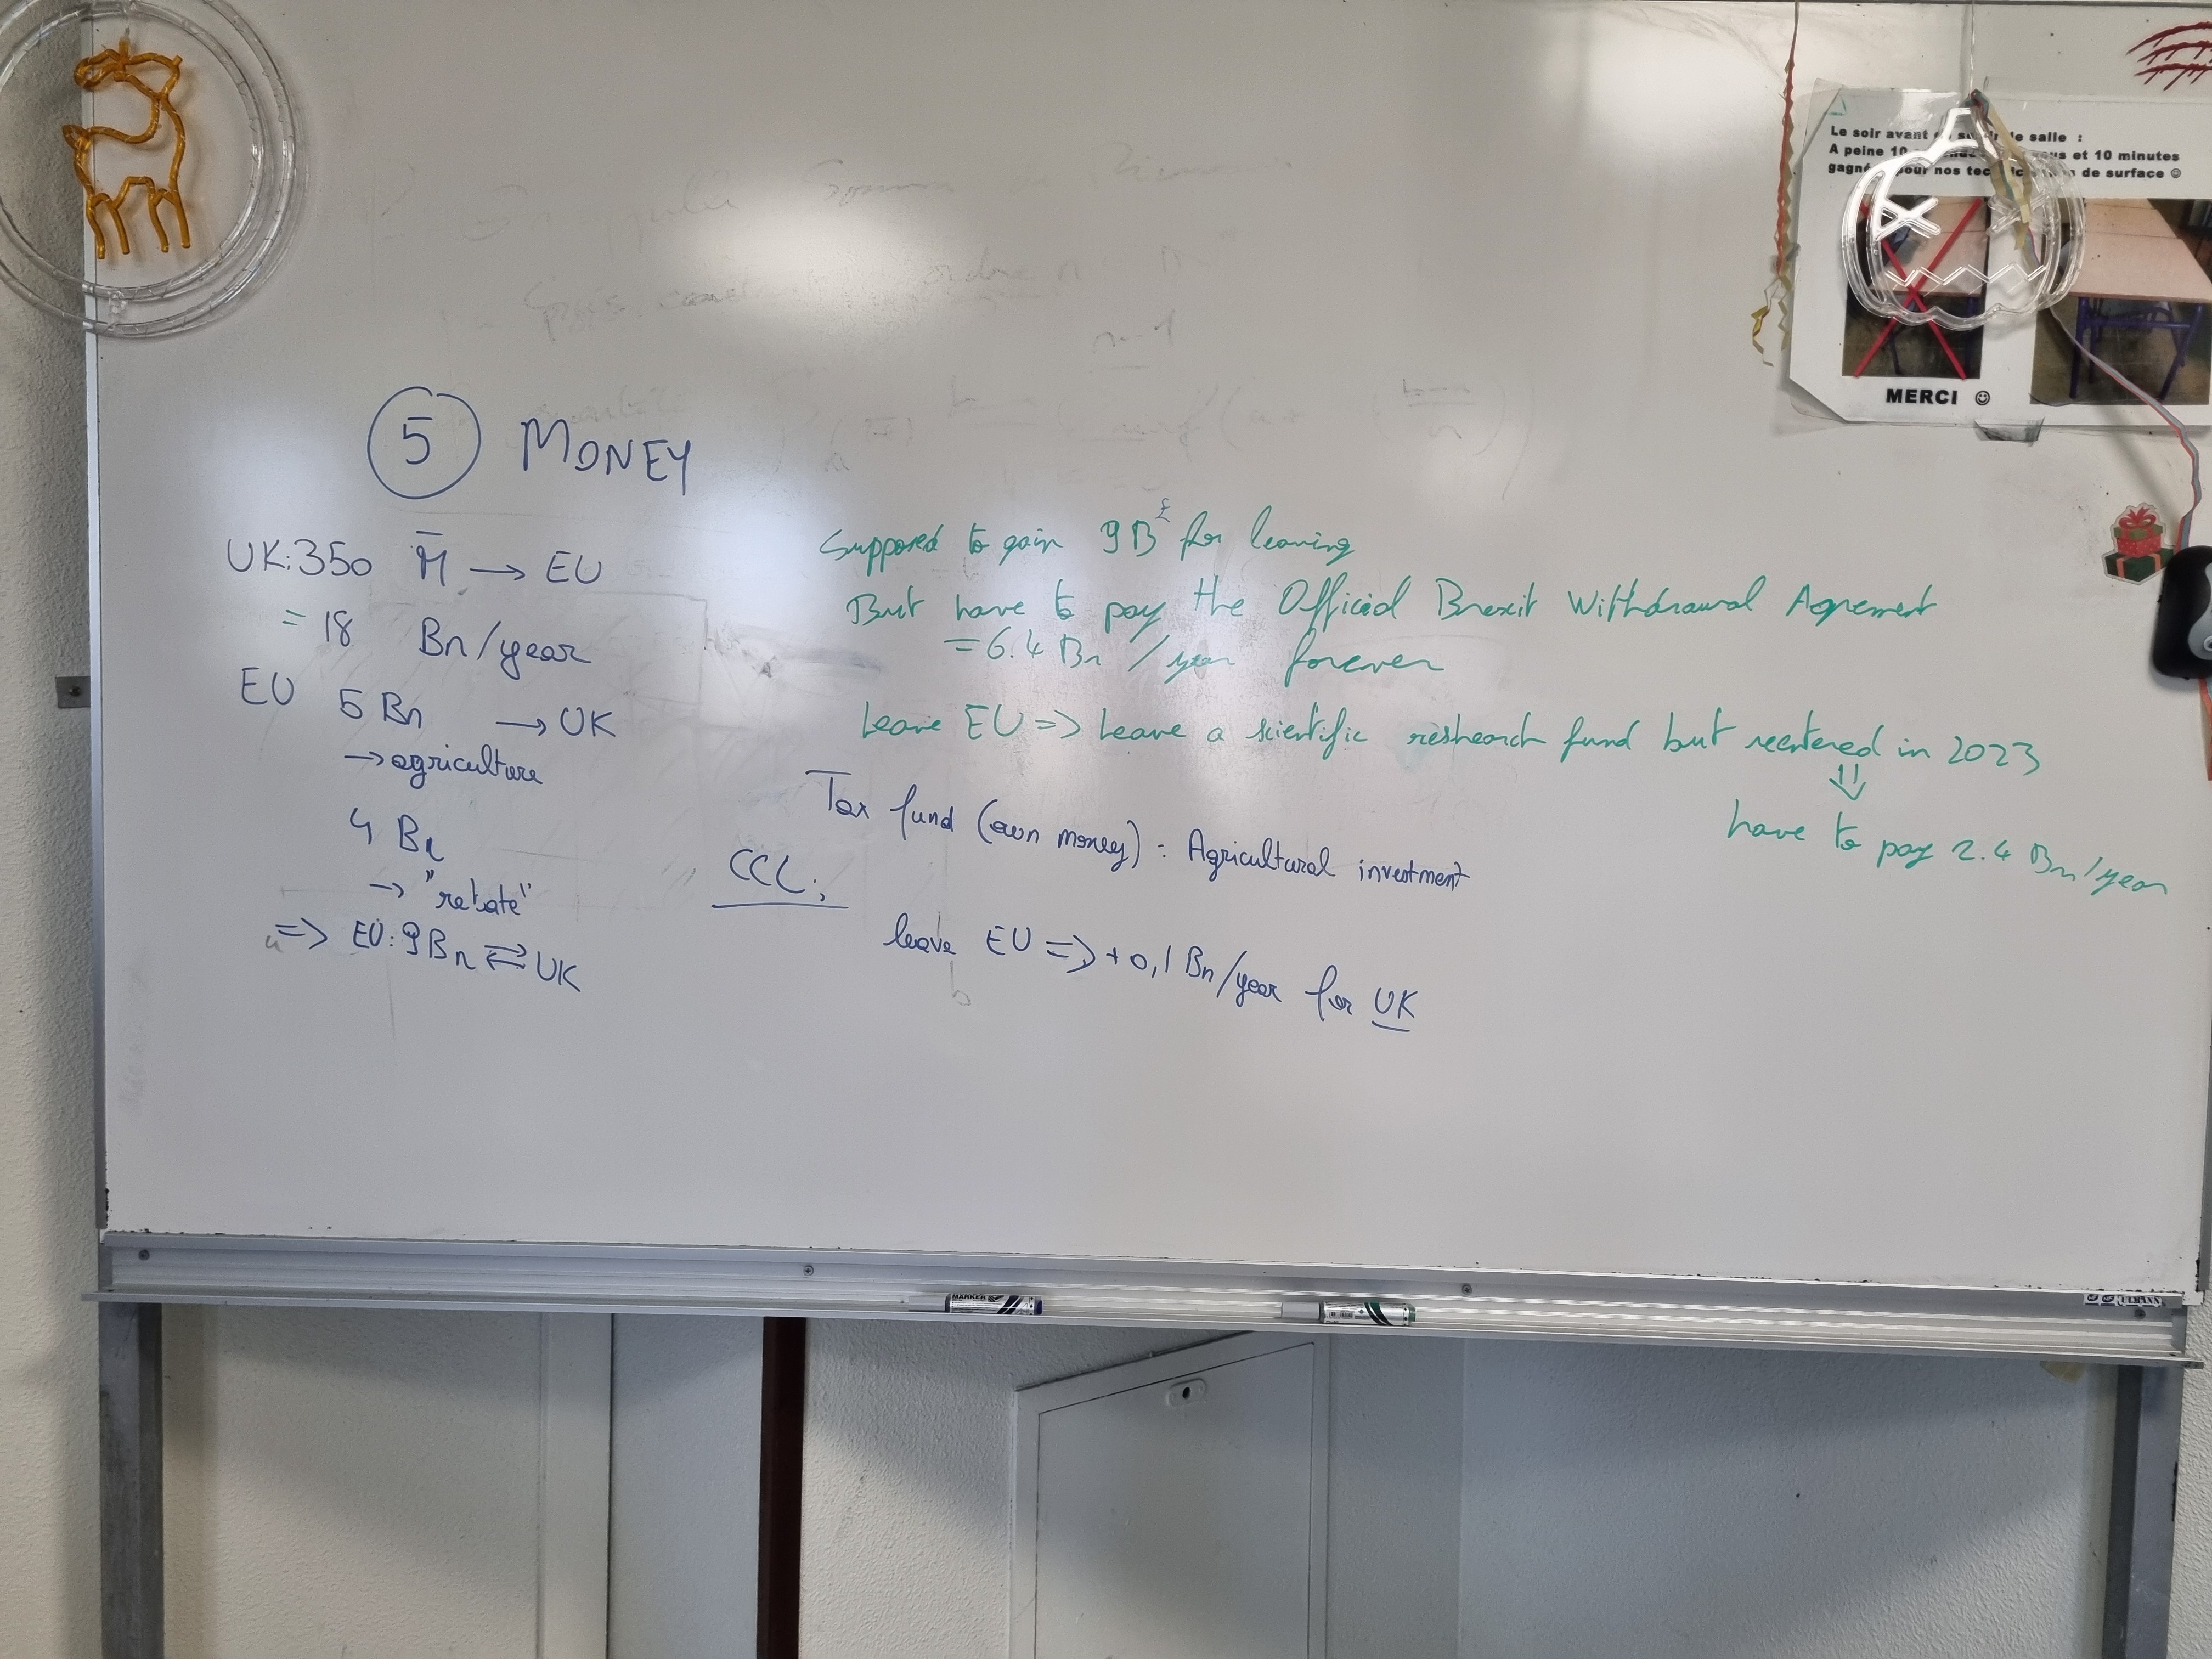 5 MONEY
UK: 350 M → EU
= 18 Bn/year
EU 5 Bn → UK
→ agriculture
4 Bn
→ "retate"
=> EU: 9 Bn ⇄ UK
Supposed to gain 9 B£ for leaving
But have to pay the Official Brexit Withdrawal Agrement
= 6.4 Bn / year forever
Leave EU => Leave a scientific reshearch fund but reentered in 2023
⇓
have to pay 2.4 Bn/year
Tax fund (own money) : Agricultural investment
CCL:
leave EU => + 0,1 Bn/year for UK
Le soir avant de salle :
A peine 10 et 10 minutes
pour nos de surface ☺
MERCI ☺
MARKER